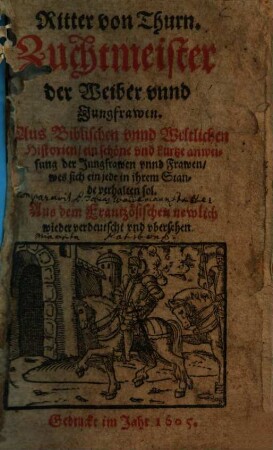 Ritter von Thurn.
Zuchtmeister
der Weiber vnnd
Jungfrawen.
Aus Biblischen vnnd Weltlichen
Historien/ ein schöne vnd kurtze anwei-
sung der Jungfrawen vnnd Frawen/
wes sich ein jede in jhrem Stan-
de verhalten sol.
Aus dem Frantzösischen newlich
wieder verdeutscht vnd vbersehen.
Gedruckt im Jahr 1605.